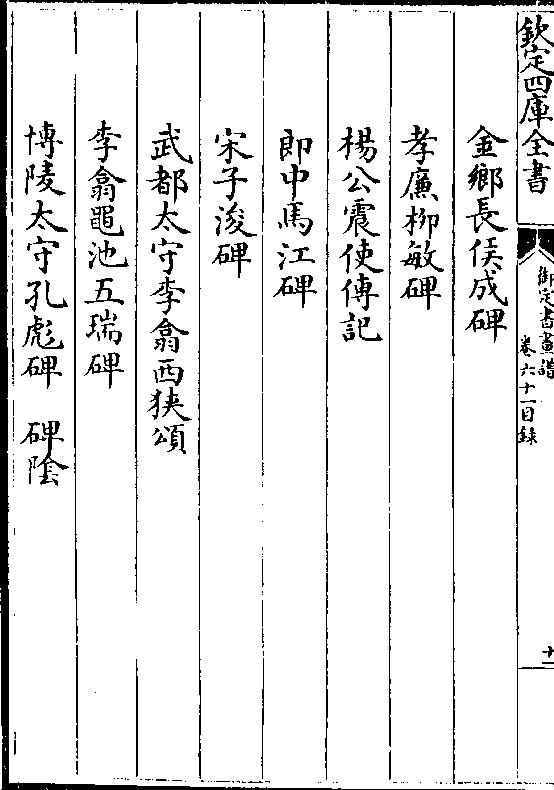 欽定四庫全書
御定書畫譜
卷六十一目錄
十一
金鄉長侯成碑
孝廉柳敏碑
楊公震使傳記
郎中馬江碑
宋子浚碑
武都太守李翕西狹頌
李翕黽池五瑞碑
博陵太守孔彪碑 碑陰